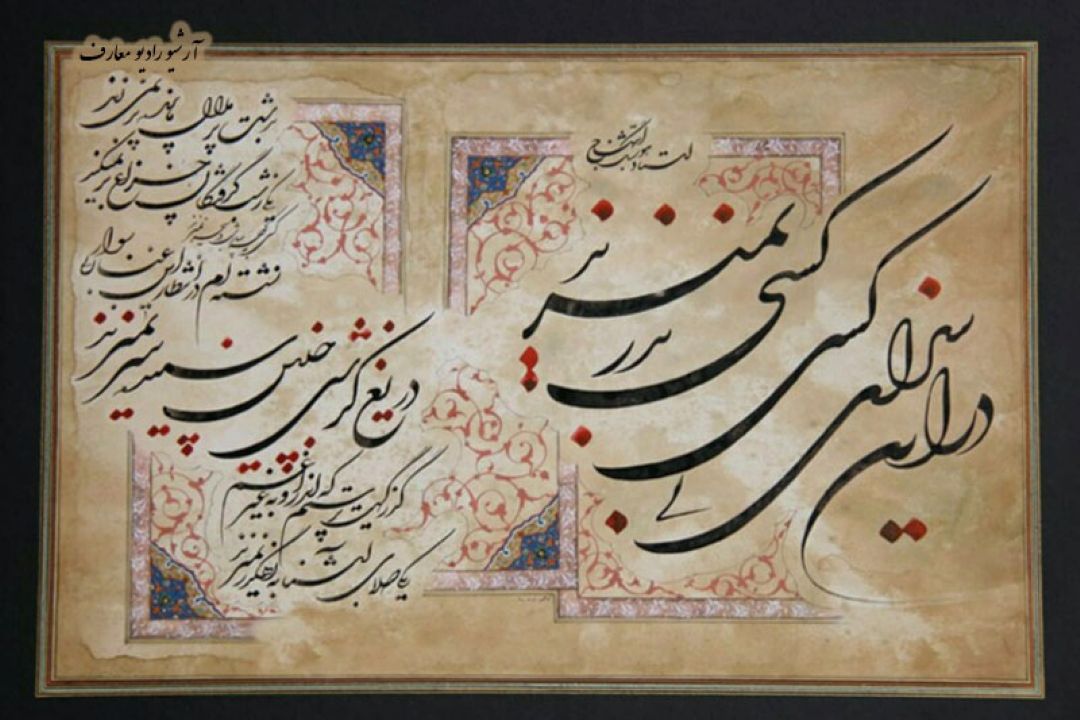 آرشیو رادیو معارف
استاد هوشنگ ابتهاج
در این سرای بی کسی کسی به در نمیزند
به دشت پر ملال ما پرنده پر نمی زند
یکی ز شب گرفتگان چراغ بر نمیکند
کسی به کوچه سار شب در سحر نمیزند
نشسته ام در انتظار این غبار بی سوار
دریغ کز شبی چنین سپیده سر نمیزند
گذرگهیست پر ستم که اندرو به غیر غم
یکی صلای آشنا به رهگذر نمیزند